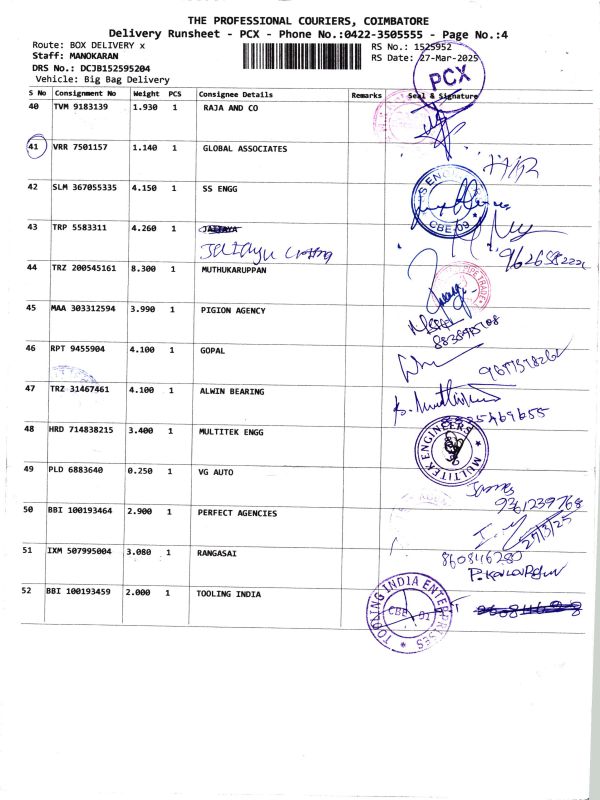 THE PROFESSIONAL COURIERS, COIMBATORE
Delivery Runsheet - PCX - Phone No.:0422-3505555 - Page No.:4
Route: BOX DELIVERY x
RS No.: 1525952
Staff: MANOKARAN
RS Date: 27-Mar-2025
DRS No.: DCJB152595204
Vehicle: Big Bag Delivery
PCX
S No Consignment No Weight PCS Consignee Details Remarks Seal & Signature
40 TVM 9183139 1.930 1 RAJA AND CO
41 VRR 7501157 1.140 1 GLOBAL ASSOCIATES
42 SLM 367055335 4.150 1 SS ENGG
CBE 09
43 TRP 5583311 4.260 1 JATAYA
44 TRZ 200545161 8.300 1 MUTHUKARUPPAN
PIPE TRADE
45 MAA 303312594 3.990 1 PIGION AGENCY
46 RPT 9455904 4.100 1 GOPAL
47 TRZ 31467461 4.100 1 ALWIN BEARING
48 HRD 714838215 3.400 1 MULTITEK ENGG
MULTITEK ENGINEERS
49 PLD 6883640 0.250 1 VG AUTO
James
9361239768
50 BBI 100193464 2.900 1 PERFECT AGENCIES
27/3/25
51 IXM 507995004 3.080 1 RANGASAI
8608116280
52 BBI 100193459 2.000 1 TOOLING INDIA
TOOLING INDIA ENTERPRISES
CBE 01